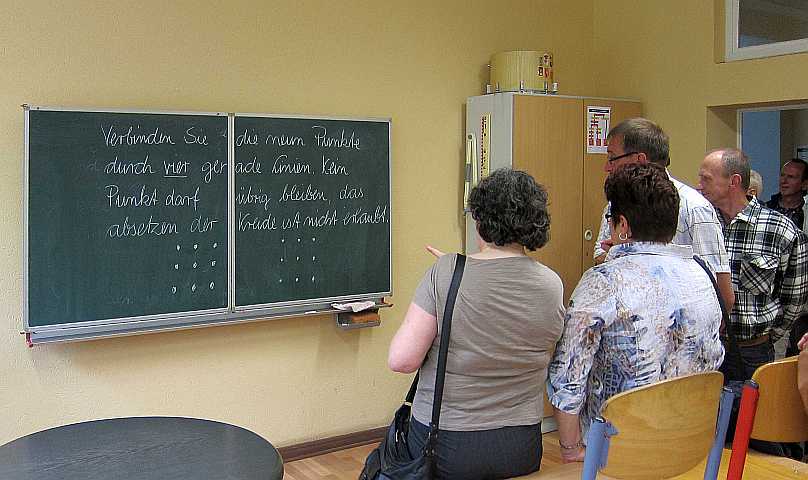 Verbinden Sie die neun Punkte
durch vier gerade Linien. Kein
Punkt darf übrig bleiben, das
absetzen der Kreide ist nicht erlaubt.